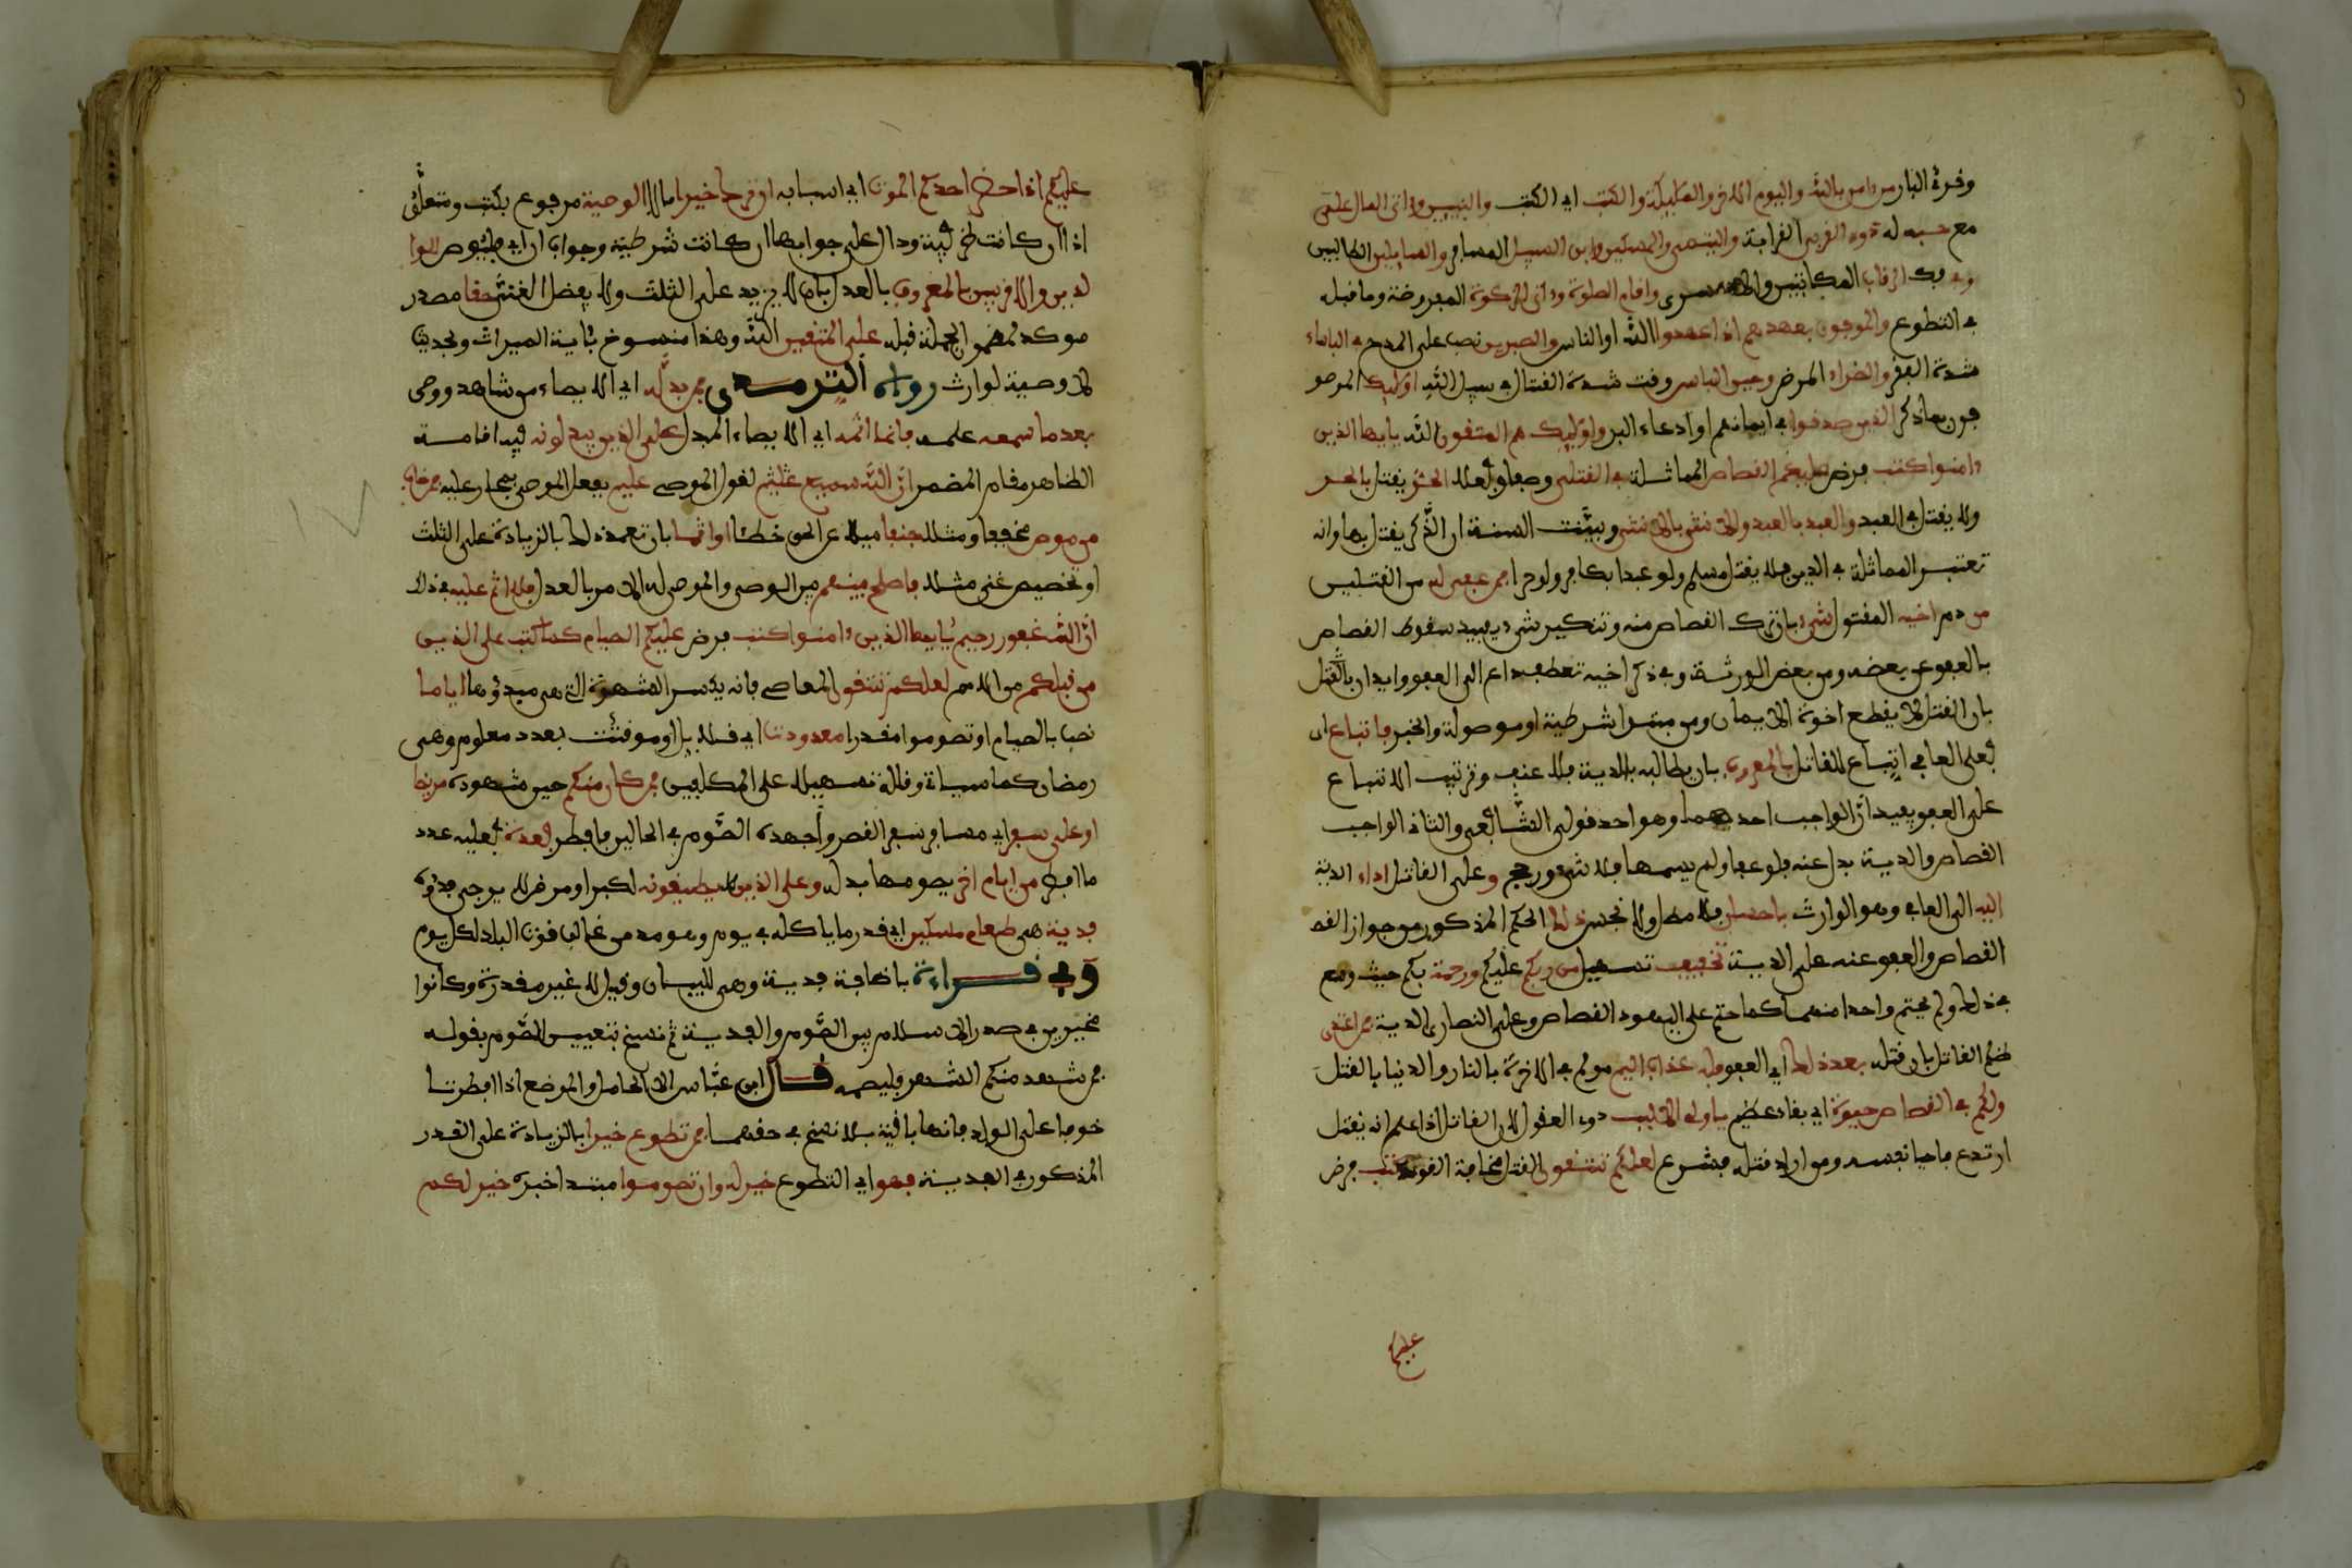 وقرئ البار من ءامن بالله واليوم الاخر والمليكة والكتب اي الكتب والنبيين وءاتى المال على
مع حبه له ذوي القربى القرابة واليتمى والمسكين وابن السبيل المسافر والسايلين الطالبين
وفي فك الرقاب المكاتبين والاسرى واقام الصلوة وءاتى الزكوة المفروضة وما قبله
في التطوع والموفون بعهدهم اذا عهدوا الله او الناس والصبرين نصب على المدح في الباساء
شدة الفقر والضراء المرض وحين الباس وقت شدة القتال في سبيل الله اوليك الموصو
فون بما ذكر الذين صدقوا في ايمانهم او ادعاء البر واوليك هم المتقون الله يايها الذين
ءامنوا كتب فرض عليكم القصاص المماثلة في القتلى وصفا وفعلا الحر يقتل بالحر
ولا يقتل بالعبد والعبد بالعبد والانثى بالانثى وبينت السنة ان الذكر يقتل بها وانه
تعتبر المماثلة في الدين فلا يقتل مسلم ولو عبدا بكافر ولو حرا فمن عفى له من القتلين
من دم اخيه المقتول شيء بان ترك القصاص منه وتنكير شيء يفيد سقوط القصاص
بالعفو عن بعضه ومن بعض الورثة وفي ذكر اخيه تعطف داع الى العفو وايذان بالقتل
بان القتل لا يقطع اخوة الايمان ومن مبتدا شرطية او موصولة والخبر فاتباع اي
فعلى العافي اتباع للقاتل بالمعروف بان يطالبه بالدية بلا عنف وترتيب الاتباع
على العفو يفيد ان الواجب احدهما وهو احد قولي الشافعي والثاني الواجب
القصاص والدية بدل عنه فلو عفا ولم يسمها فلا شيء ورجح وعلى القاتل اداء الدية
اليه الى العافي وهو الوارث باحسان بلا مطل ولا بخس ذلك الحكم المذكور من جواز القصا
القصاص والعفو عنه على الدية تخفيف تسهيل من ربكم عليكم ورحمة بكم حيث وسع
في ذلك ولم يحتم واحدا منهما كما حتم على اليهود القصاص وعلى النصارى الدية فمن اعتدى
ظلم القاتل بان قتله بعد ذلك اي العفو فله عذاب اليم مولم في الاخرة بالنار والدنيا بالقتل
ولكم في القصاص حيوة اي بقاء عظيم ياولي الالبب ذوي العقول لان القاتل اذا علم انه يقتل
ارتدع فاحيا نفسه ومن اراد قتله فشرع لعلكم تتقون القتل مخافة القود كتب فرض
عليكم
عليكم اذا حضر احدكم الموت اي اسبابه ان ترك خيرا مالا الوصية مرفوع بكتب ومتعلق
اذا ان كانت ظرفية ودال على جوابها ان كانت شرطية وجواب ان اي فليوص للوا
لدين والاقربين بالمعروف بالعدل بان لا يزيد على الثلث ولا يفضل الغني حقا مصدر
موكد لمضمون الجملة قبله على المتقين الله وهذا منسوخ بئاية الميراث وبحديث
لا وصية لوارث رواه الترمذي فمن بدله اي الايصاء من شاهد ووصي
بعد ما سمعه علمه فانما اثمه اي الايصاء المبدل على الذين يبدلونه فيه اقامة
الظاهر مقام المضمر ان الله سميع عليم لقول الموصي عليم بفعل الموصى فمجاز عليه فمن خاف
من موص مخففا ومثقلا جنفا ميلا عن الحق خطئا او اثما بان تعمد ذلك بالزيادة على الثلث
او تخصيص غني مثلا فاصلح بينهم بين الموصي والموصى له بالامر بالعدل فلا اثم عليه في ذلك
ان الله غفور رحيم يايها الذين ءامنوا كتب فرض عليكم الصيام كما كتب على الذين
من قبلكم من الامم لعلكم تتقون المعاصي فانه يكسر الشهوة التي هي مبدؤها اياما
نصب بالصيام او تصوموا مقدرا معدودت اي قلايل او موقتت بعدد معلوم وهي
رمضان كما سياتي وقلله تسهيلا على المكلفين فمن كان منكم حين شهوده مريضا
او على سفر اي مسافر سفر القصر واجهده الصوم في الحالين فافطر فعدة فعليه عدد
ما افطر من ايام اخر يصومها بدله وعلى الذين لا يطيقونه لكبر او مرض لا يرجى برؤه
فدية هي طعام مسكين اي قدر ما ياكله في يوم وهو مد من غالب قوت البلد لكل يوم
وفي قراءة باضافة فدية وهي للبيان وقيل لا غير مقدرة وكانوا
مخيرين في صدر الاسلام بين الصوم والفدية ثم نسخ بتعيين الصوم بقوله
فمن شهد منكم الشهر فليصمه قال ابن عباس الا الحامل والمرضع اذا افطرتا
خوفا على الولد فانها باقية بلا نسخ في حقهما فمن تطوع خيرا بالزيادة على القدر
المذكور في الفدية فهو اي التطوع خير له وان تصوموا مبتدا خبره خير لكم